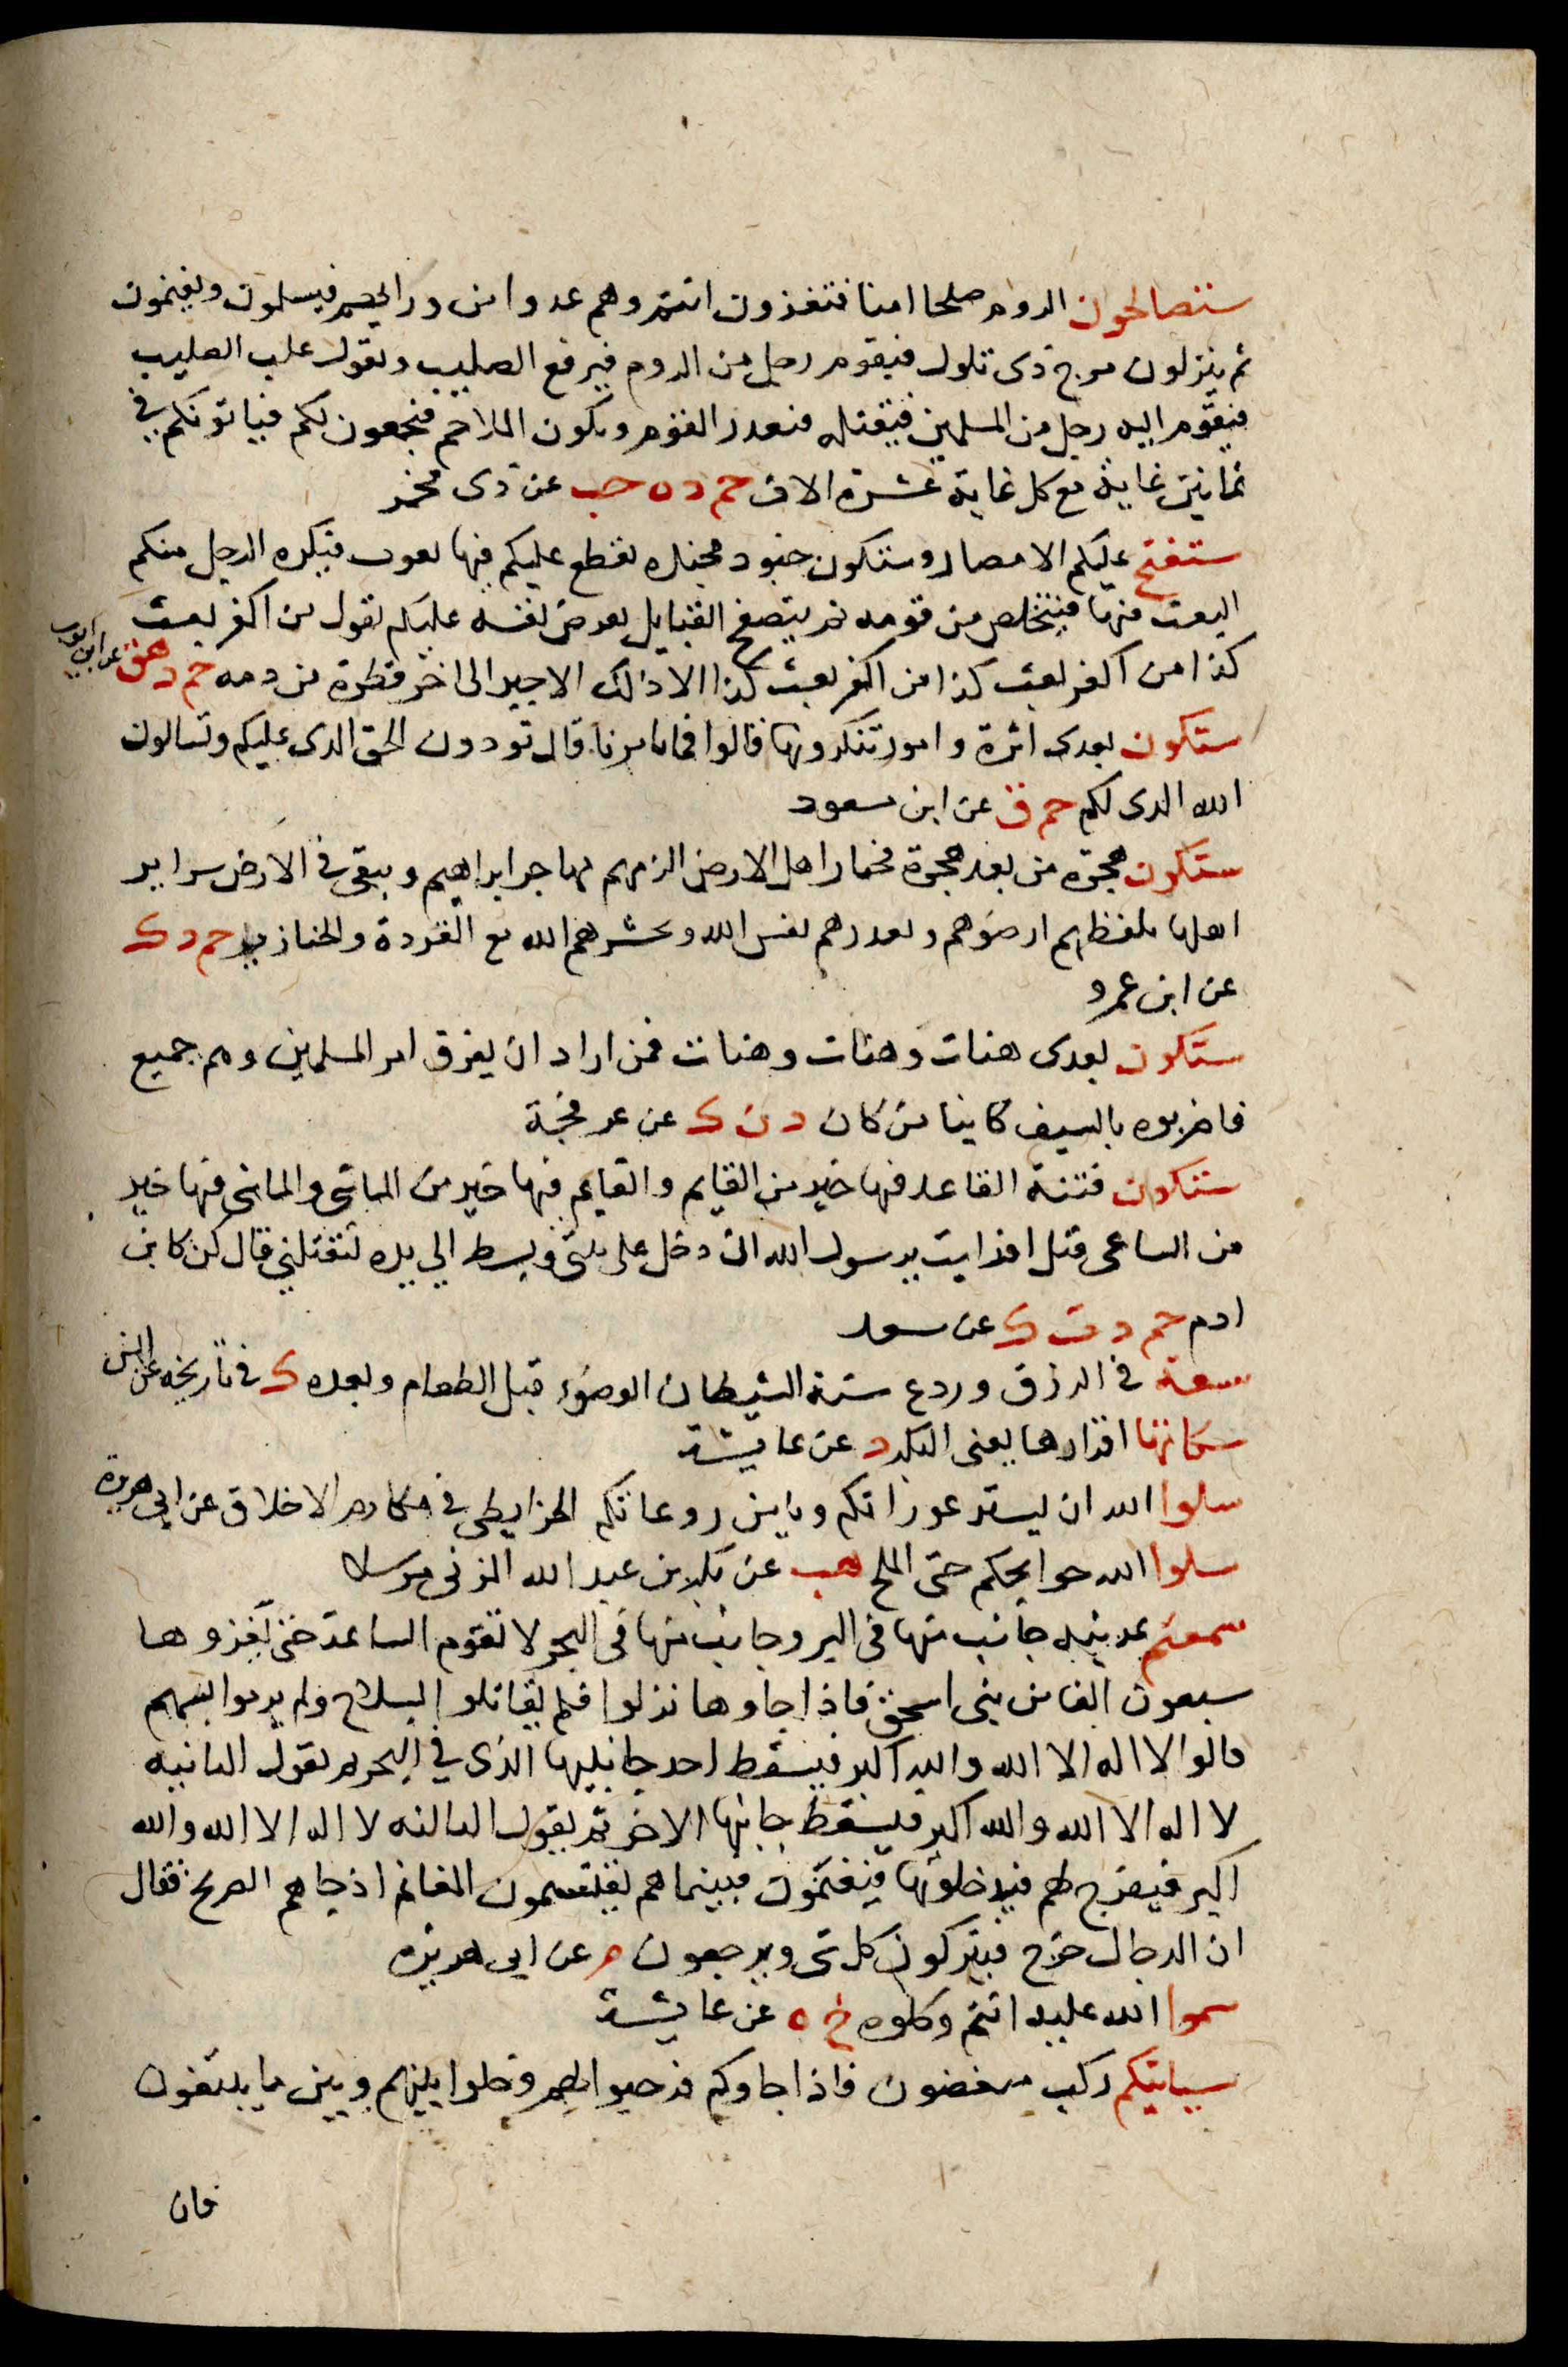 ستصالحون الروم صلحا امنا فتغزون انتم وهم عدوا من ورايهم فيسلمون ويغنمون
ثم ينزلون مرج ذى تلول فيقوم رجل من الروم فيرفع الصليب ويقول غلب الصليب
فيقوم اليه رجل من المسلمين فيقتله فيغدر القوم وتكون الملاحم فيجمعون لكم فياتونكم في
ثمانين غاية مع كل غاية عشرة الاف حم د ه حب عن ذى مخمر
ستفتح عليكم الامصار وستكون جنود مجنده تقطع عليكم فيها بعوث فيكره الرجل منكم
البعث فيها فيتخلص من قومه ثم يتصفح القبايل يعرض نفسه عليهم يقول من اكفه بعث
كذا من اكفه بعث كذا من اكفه بعث كذا الا وذلك الاجير الى اخر قطرة من دمه حم د هق عن ابى ايوب
ستكون بعدى اثرة وامور تنكرونها قالوا فما تامرنا قال تودون الحق الذى عليكم وتسالون
الله الذى لكم حم ق عن ابن مسعود
ستكون هجرة من بعد هجرة فخيار اهل الارض الزمهم مهاجر ابراهيم ويبقى فى الارض شرار
اهلها تلفظهم ارضوهم وتقذرهم نفس الله وتحشرهم الله مع القردة والخنازير حم د ك
عن ابن عمرو
ستكون بعدى هنات وهنات وهنات فمن اراد ان يفرق امر المسلمين وهم جميع
فاضربوه بالسيف كاينا من كان د ن ك عن عرفجة
ستكون فتنة القاعد فيها خير من القايم والقايم فيها خير من الماشى والماشى فيها خير
من الساعى قيل افرايت يرسول الله ان دخل على بيتى وبسط الي يده ليقتلني قال كن كابن
ادم حم د ت ك عن سعد
سعة فى الرزق وردع سنة الشيطان الوضوء قبل الطعام وبعده ك فى تاريخه عن انس
سكاتها اقرارها يعنى البكر د عن عايشة
سلوا الله ان يستر عوراتكم ويامن روعاتكم الخرايطى فى مكارم الاخلاق عن ابى هريرة
سلوا الله حوايجكم حتى الملح هب عن بكر بن عبد الله المزنى مرسلا
سمعتم بمدينه جانب منها فى البر وجانب منها فى البحر لا تقوم الساعة حتى يغزوها
سبعون الفا من بنى اسحق فاذا جاوها نزلوا فلم يقاتلوا بسلاح ولم يرموا بسهم
قالوا لا اله الا الله والله اكبر فيسقط احد جانبيها الذى في البحر ثم يقول الثانيه
لا اله الا الله والله اكبر فيسقط جانبها الاخر ثم يقول الثالثه لا اله الا الله والله
اكبر فيفرج لهم فيدخلونها فيغنمون فبينما هم يقتسمون المغانم اذ جاهم الصريخ فقال
ان الدجال خرج فيتركون كل شى ويرجعون م عن ابى هريره
سموا الله عليه انتم وكلوه خ ه عن عايشة
سياتيكم ركب مبغضون فاذا جاوكم فرحبوا بهم وخلوا بينهم وبين ما يبتغون
فان